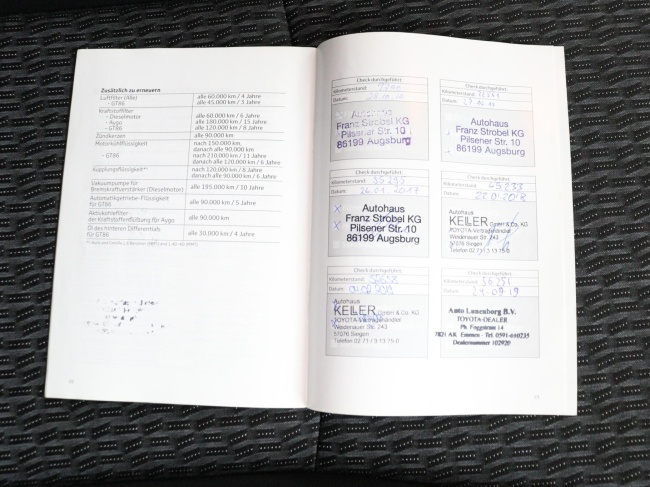 Zusätzlich zu erneuern
Luftfilter (Alle) alle 60.000 km / 4 Jahre
- GT86 alle 45.000 km / 3 Jahre
Kraftstofffilter
- Dieselmotor alle 60.000 km / 6 Jahre
- Aygo alle 180.000 km / 15 Jahre
- GT86 alle 120.000 km / 8 Jahre
Zündkerzen alle 90.000 km
Motorkühlflüssigkeit nach 150.000 km,
danach alle 90.000 km
- GT86 nach 210.000 km / 11 Jahre
danach alle 120.000 km / 6 Jahre
Kupplungsflüssigkeit** nach 120.000 km / 8 Jahre
danach alle 90.000 km / 6 Jahre
Vakuumpumpe für
Bremskraftverstärker (Dieselmotor) alle 195.000 km / 10 Jahre
Automatikgetriebe-Flüssigkeit
für GT86 alle 90.000 km / 5 Jahre
Aktivkohlefilter
der Kraftstoffentlüftung für Aygo alle 90.000 km
Öl des hinteren Differentials
für GT86 alle 30.000 km / 4 Jahre
Check durchgeführt:
Kilometerstand:
Datum:
Autohaus
Franz Strobel KG
Pilsener Str. 10
86199 Augsburg
Check durchgeführt:
Kilometerstand:
Datum:
Autohaus
Franz Strobel KG
Pilsener Str. 10
86199 Augsburg
Check durchgeführt:
Kilometerstand: 35295
Datum: 26.01.2017
Autohaus
Franz Strobel KG
Pilsener Str. 10
86199 Augsburg
Check durchgeführt:
Kilometerstand: 45233
Datum: 22.01.2018
Autohaus
KELLER GmbH & Co. KG
TOYOTA-Vertragshändler
Weidenauer Str. 243
57076 Siegen
Telefon 02 71 / 3 13 75 0
Check durchgeführt:
Kilometerstand:
Datum:
Autohaus
KELLER GmbH & Co. KG
TOYOTA-Vertragshändler
Weidenauer Str. 243
57076 Siegen
Telefon 02 71 / 3 13 75 0
Check durchgeführt:
Kilometerstand: 56251
Datum: 24.09.19
Auto Lunenborg B.V.
TOYOTA-DEALER
Ph. Foggstraat 14
7821 AK Emmen - Tel. 0591-610235
Dealernummer 102920